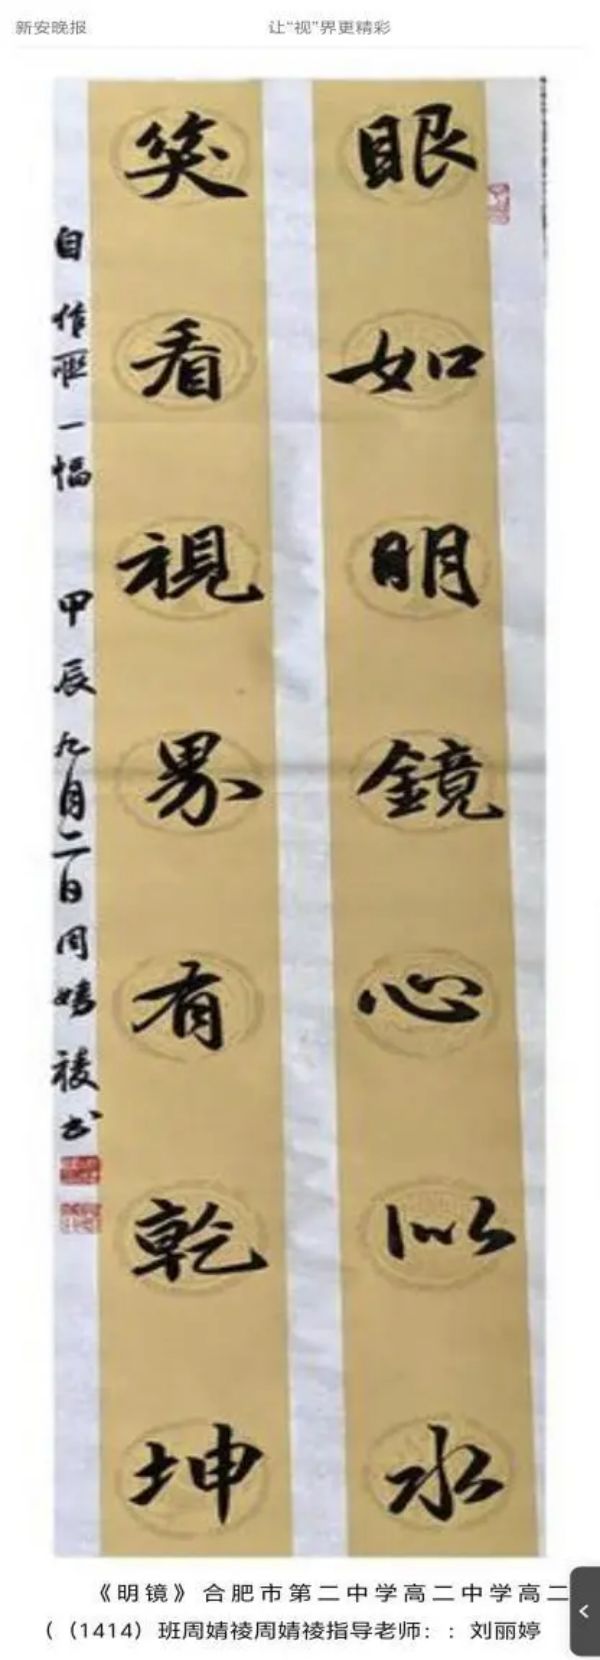 新安晚报
让“视”界更精彩
眼如明鏡心似水
笑看視界有乾坤
自作聯一幅 甲辰九月二日周婧祾书
《明镜》合肥市第二中学高二中学高二
（（1414）班周婧祾周婧祾指导老师：：刘丽婷